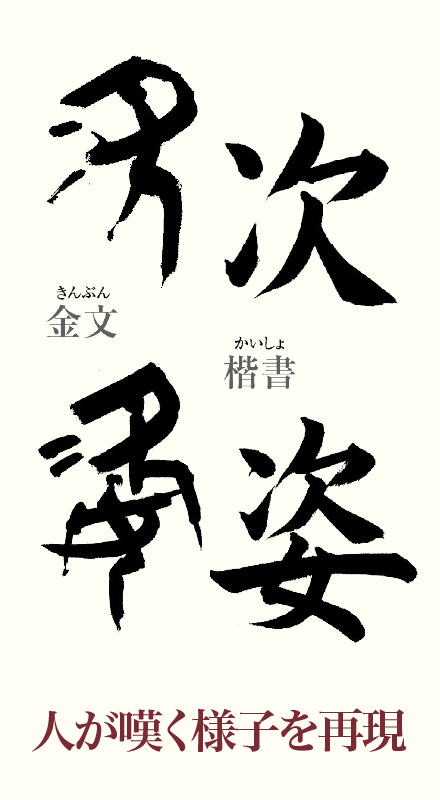 次
きんぶん
金文
かいしょ
楷書
姿
人が嘆く様子を再現